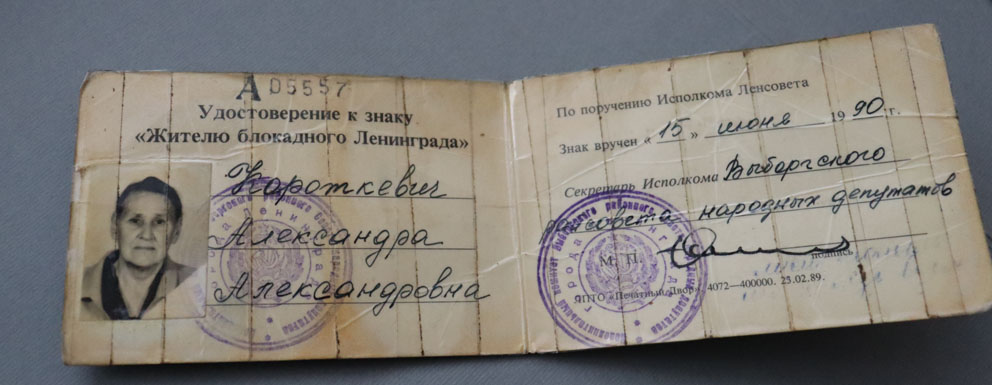 А 05557
Удостоверение к знаку
«Жителю блокадного Ленинграда»
Короткевич
Александра
Александровна
По поручению Исполкома Ленсовета
Знак вручен «15» июня 1990 г.
Секретарь Исполкома Выборгского
райсовета народных депутатов
М. П.
подпись
ЯПТО «Печатный Двор» 4072—400000. 23.02.89.